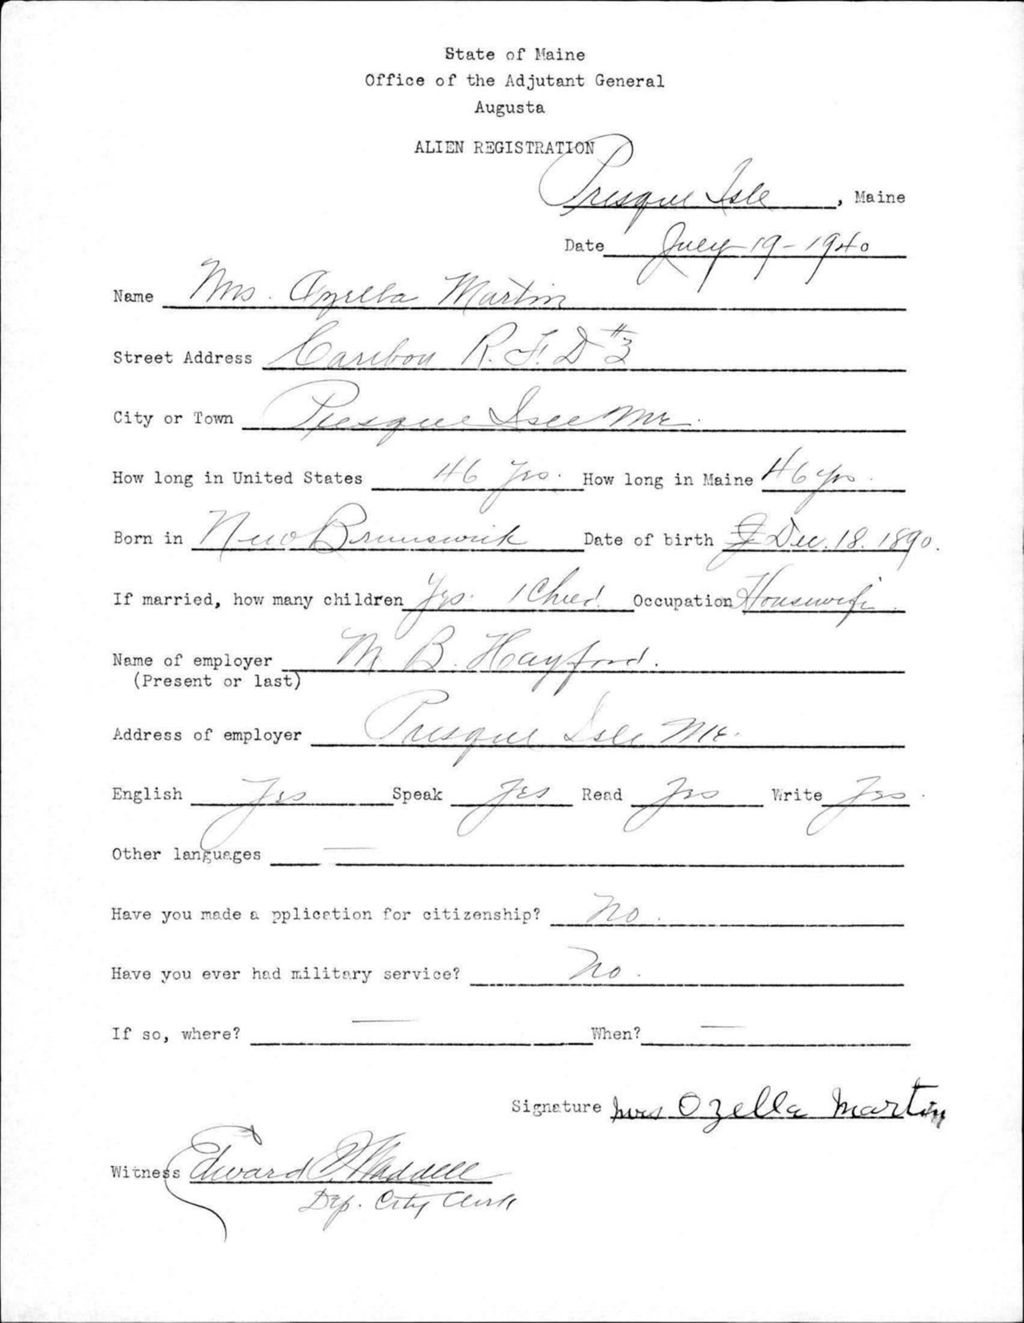 State of Maine
Office of the Adjutant General
Augusta
ALIEN REGISTRATION
Presque Isle, Maine
Date July 19 - 1940
Name Mrs. Ozella Martin
Street Address Caribou R.F.D #3
City or Town Presque Isle Me.
How long in United States 46 Yrs. How long in Maine 46 yrs.
Born in New Brunswick Date of birth Dec. 18. 1890.
If married, how many children Yes. 1 Child Occupation Housewife.
Name of employer M B. Hayford.
(Present or last)
Address of employer Presque Isle Me.
English Yes Speak Yes Read Yes Write Yes.
Other languages —
Have you made a pplication for citizenship? No.
Have you ever had military service? No.
If so, where? — When? —
Signature Mrs Ozella Martin
Witness Edward Waddell
Dep. City Clerk